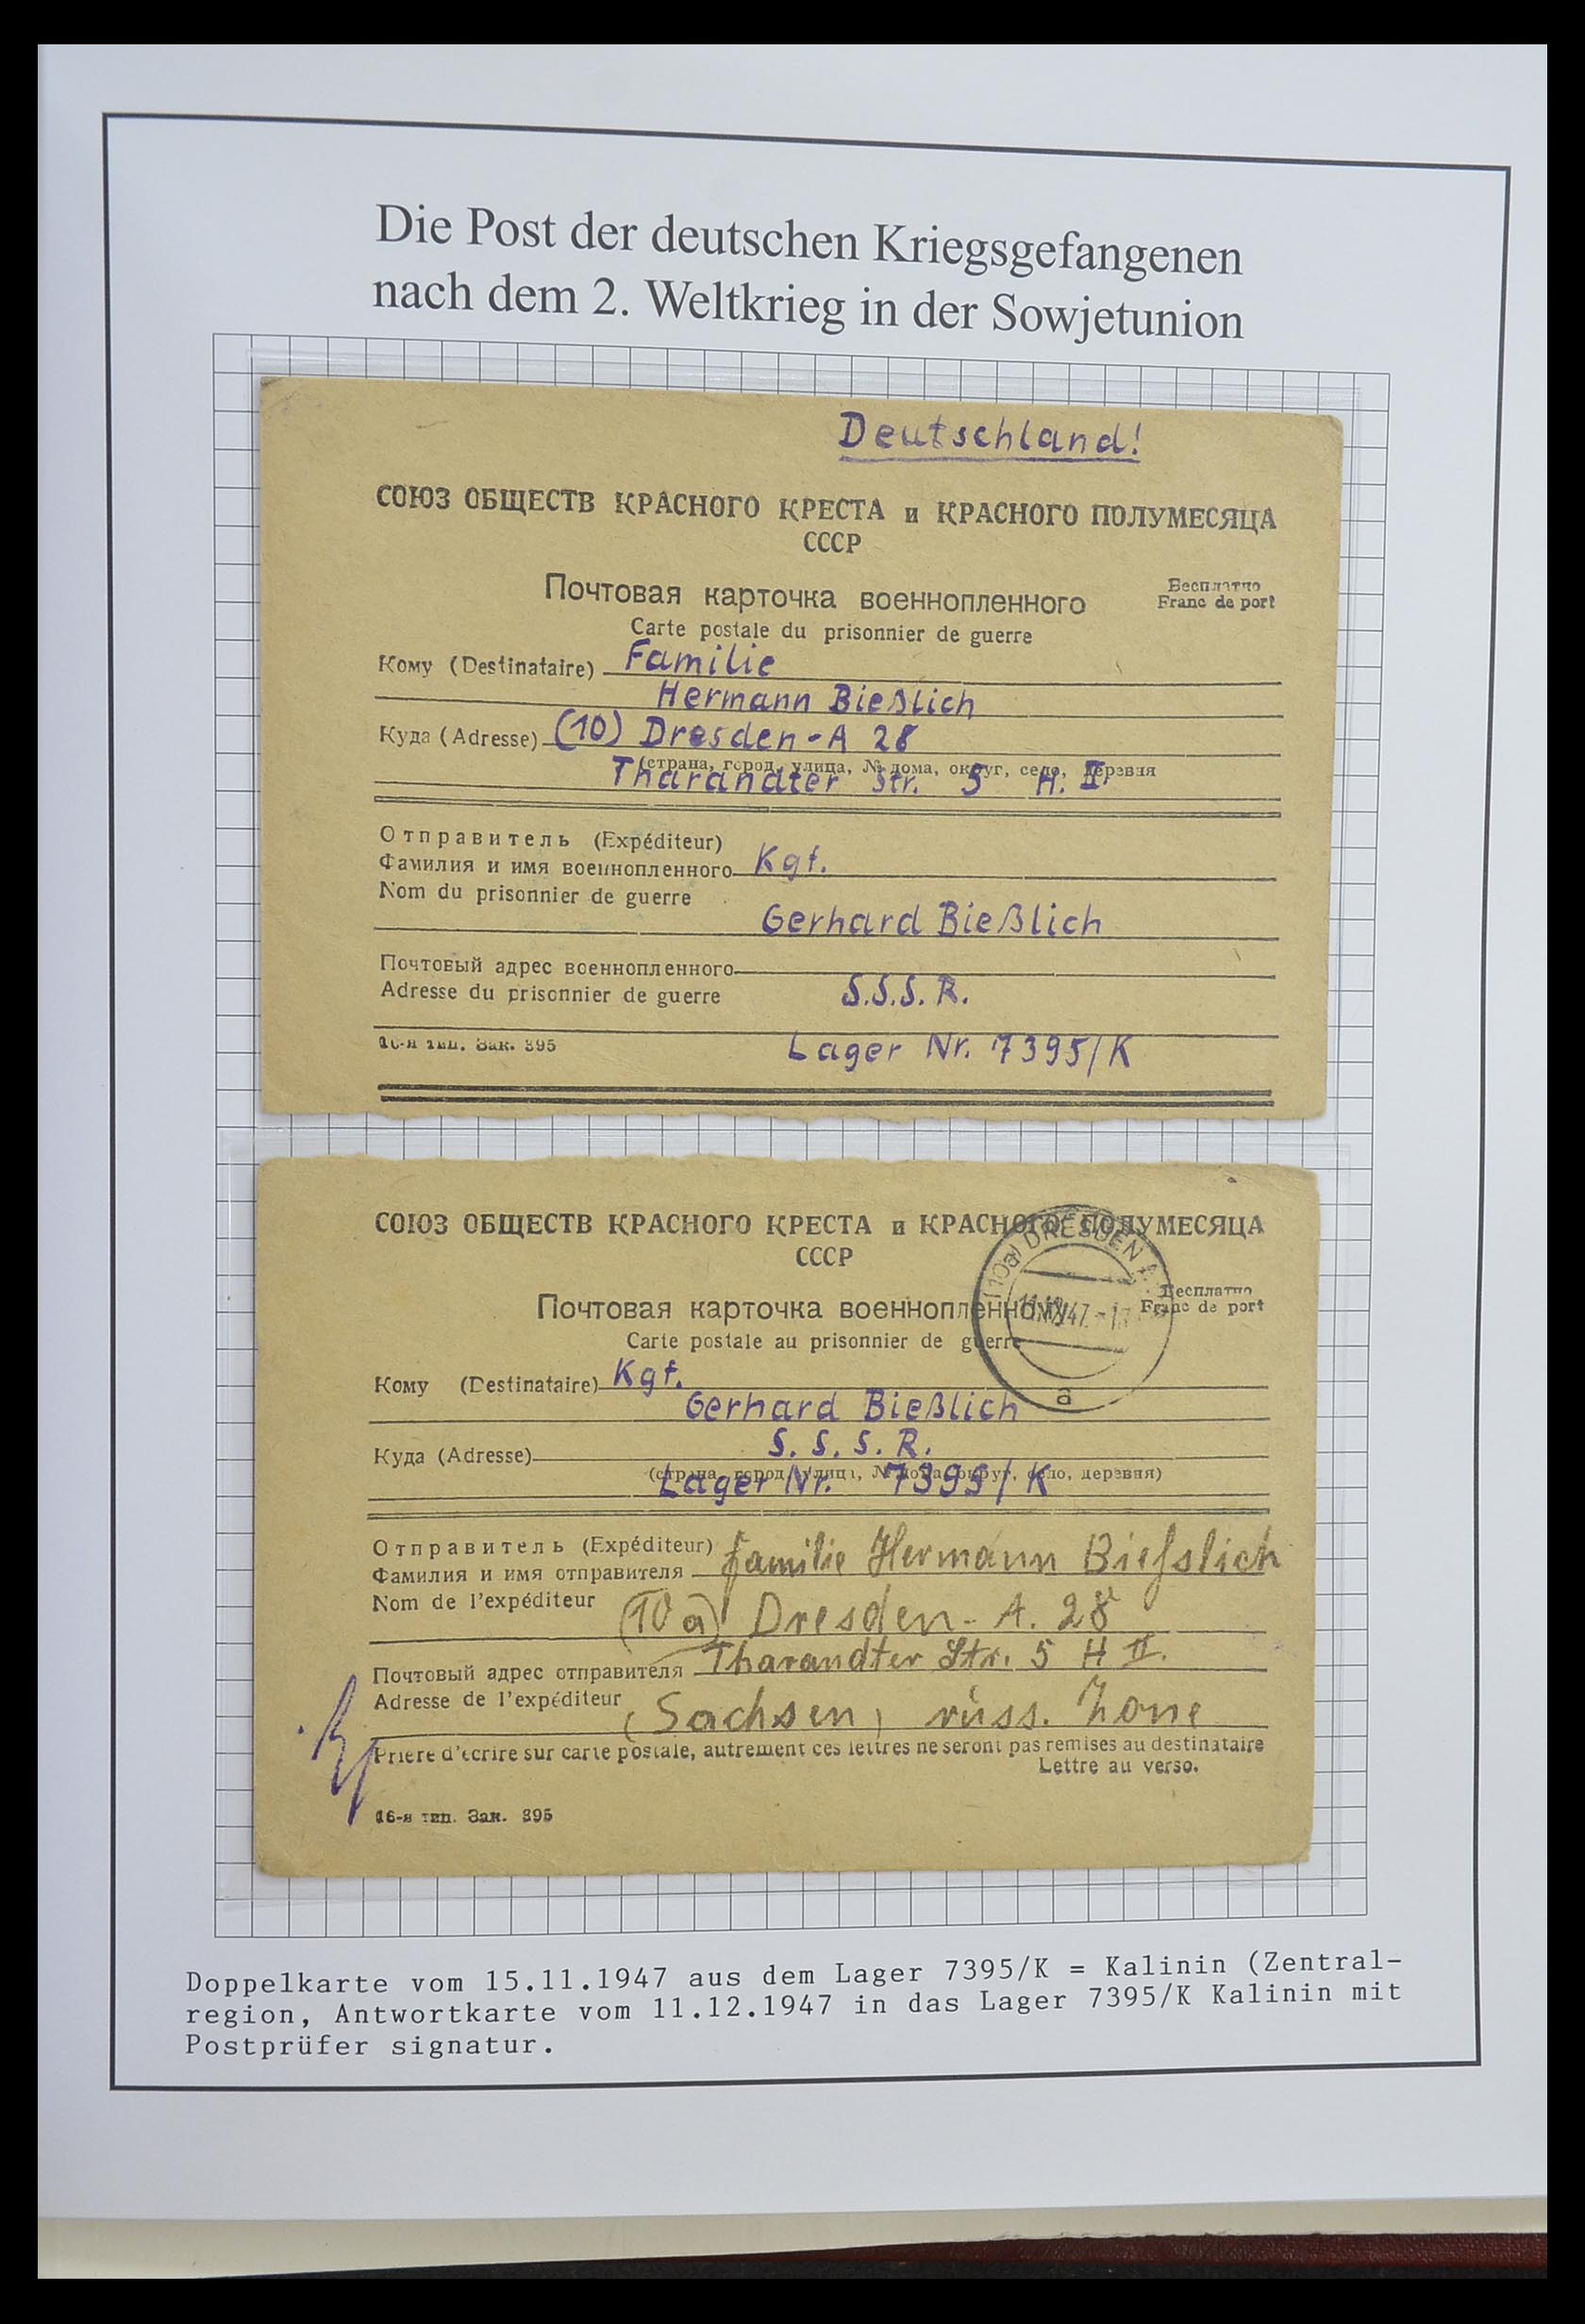 Die Post der deutschen Kriegsgefangenen
nach dem 2. Weltkrieg in der Sowjetunion
Deutschland!
СОЮЗ ОБЩЕСТВ КРАСНОГО КРЕСТА и КРАСНОГО ПОЛУМЕСЯЦА
СССР
Почтовая карточка военнопленного
Бесплатно
Carte postale du prisonnier de guerre
Franc de port
Кому (Destinataire) Familie
Hermann Bießlich
Куда (Adresse) (10) Dresden-A 28
(страна, город, улица, № дома, округ, село, деревня
Tharandter Str. 5 H. II
Отправитель (Expéditeur)
Фамилия и имя военнопленного Kgf.
Nom du prisonnier de guerre
Gerhard Bießlich
Почтовый адрес военнопленного
Adresse du prisonnier de guerre S.S.S.R.
16-я тип. Зак. 395
Lager Nr. 7395/K
СОЮЗ ОБЩЕСТВ КРАСНОГО КРЕСТА и КРАСНОГО ПОЛУМЕСЯЦА
СССР
(10a) DRESDEN A
47.-
a
Почтовая карточка военнопленному
Бесплатно
Franc de port
Carte postale au prisonnier de guerre
Кому (Destinataire) Kgf.
Gerhard Bießlich
Куда (Adresse) S.S.S.R.
(страна, город, улица, № дома, округ, село, деревня)
Lager Nr. 7395/K
Отправитель (Expéditeur)
Фамилия и имя отправителя Familie Hermann Bießlich
Nom de l'expéditeur
(10a) Dresden-A. 28
Почтовый адрес отправителя Tharandter Str. 5 H II.
Adresse de l'expéditeur (Sachsen) russ. Zone
Prière d'écrire sur carte postale, autrement ces lettres ne seront pas remises au destinataire
Lettre au verso.
16-я тип. Зак. 395
Doppelkarte vom 15.11.1947 aus dem Lager 7395/K = Kalinin (Zentral-
region, Antwortkarte vom 11.12.1947 in das Lager 7395/K Kalinin mit
Postprüfer signatur.